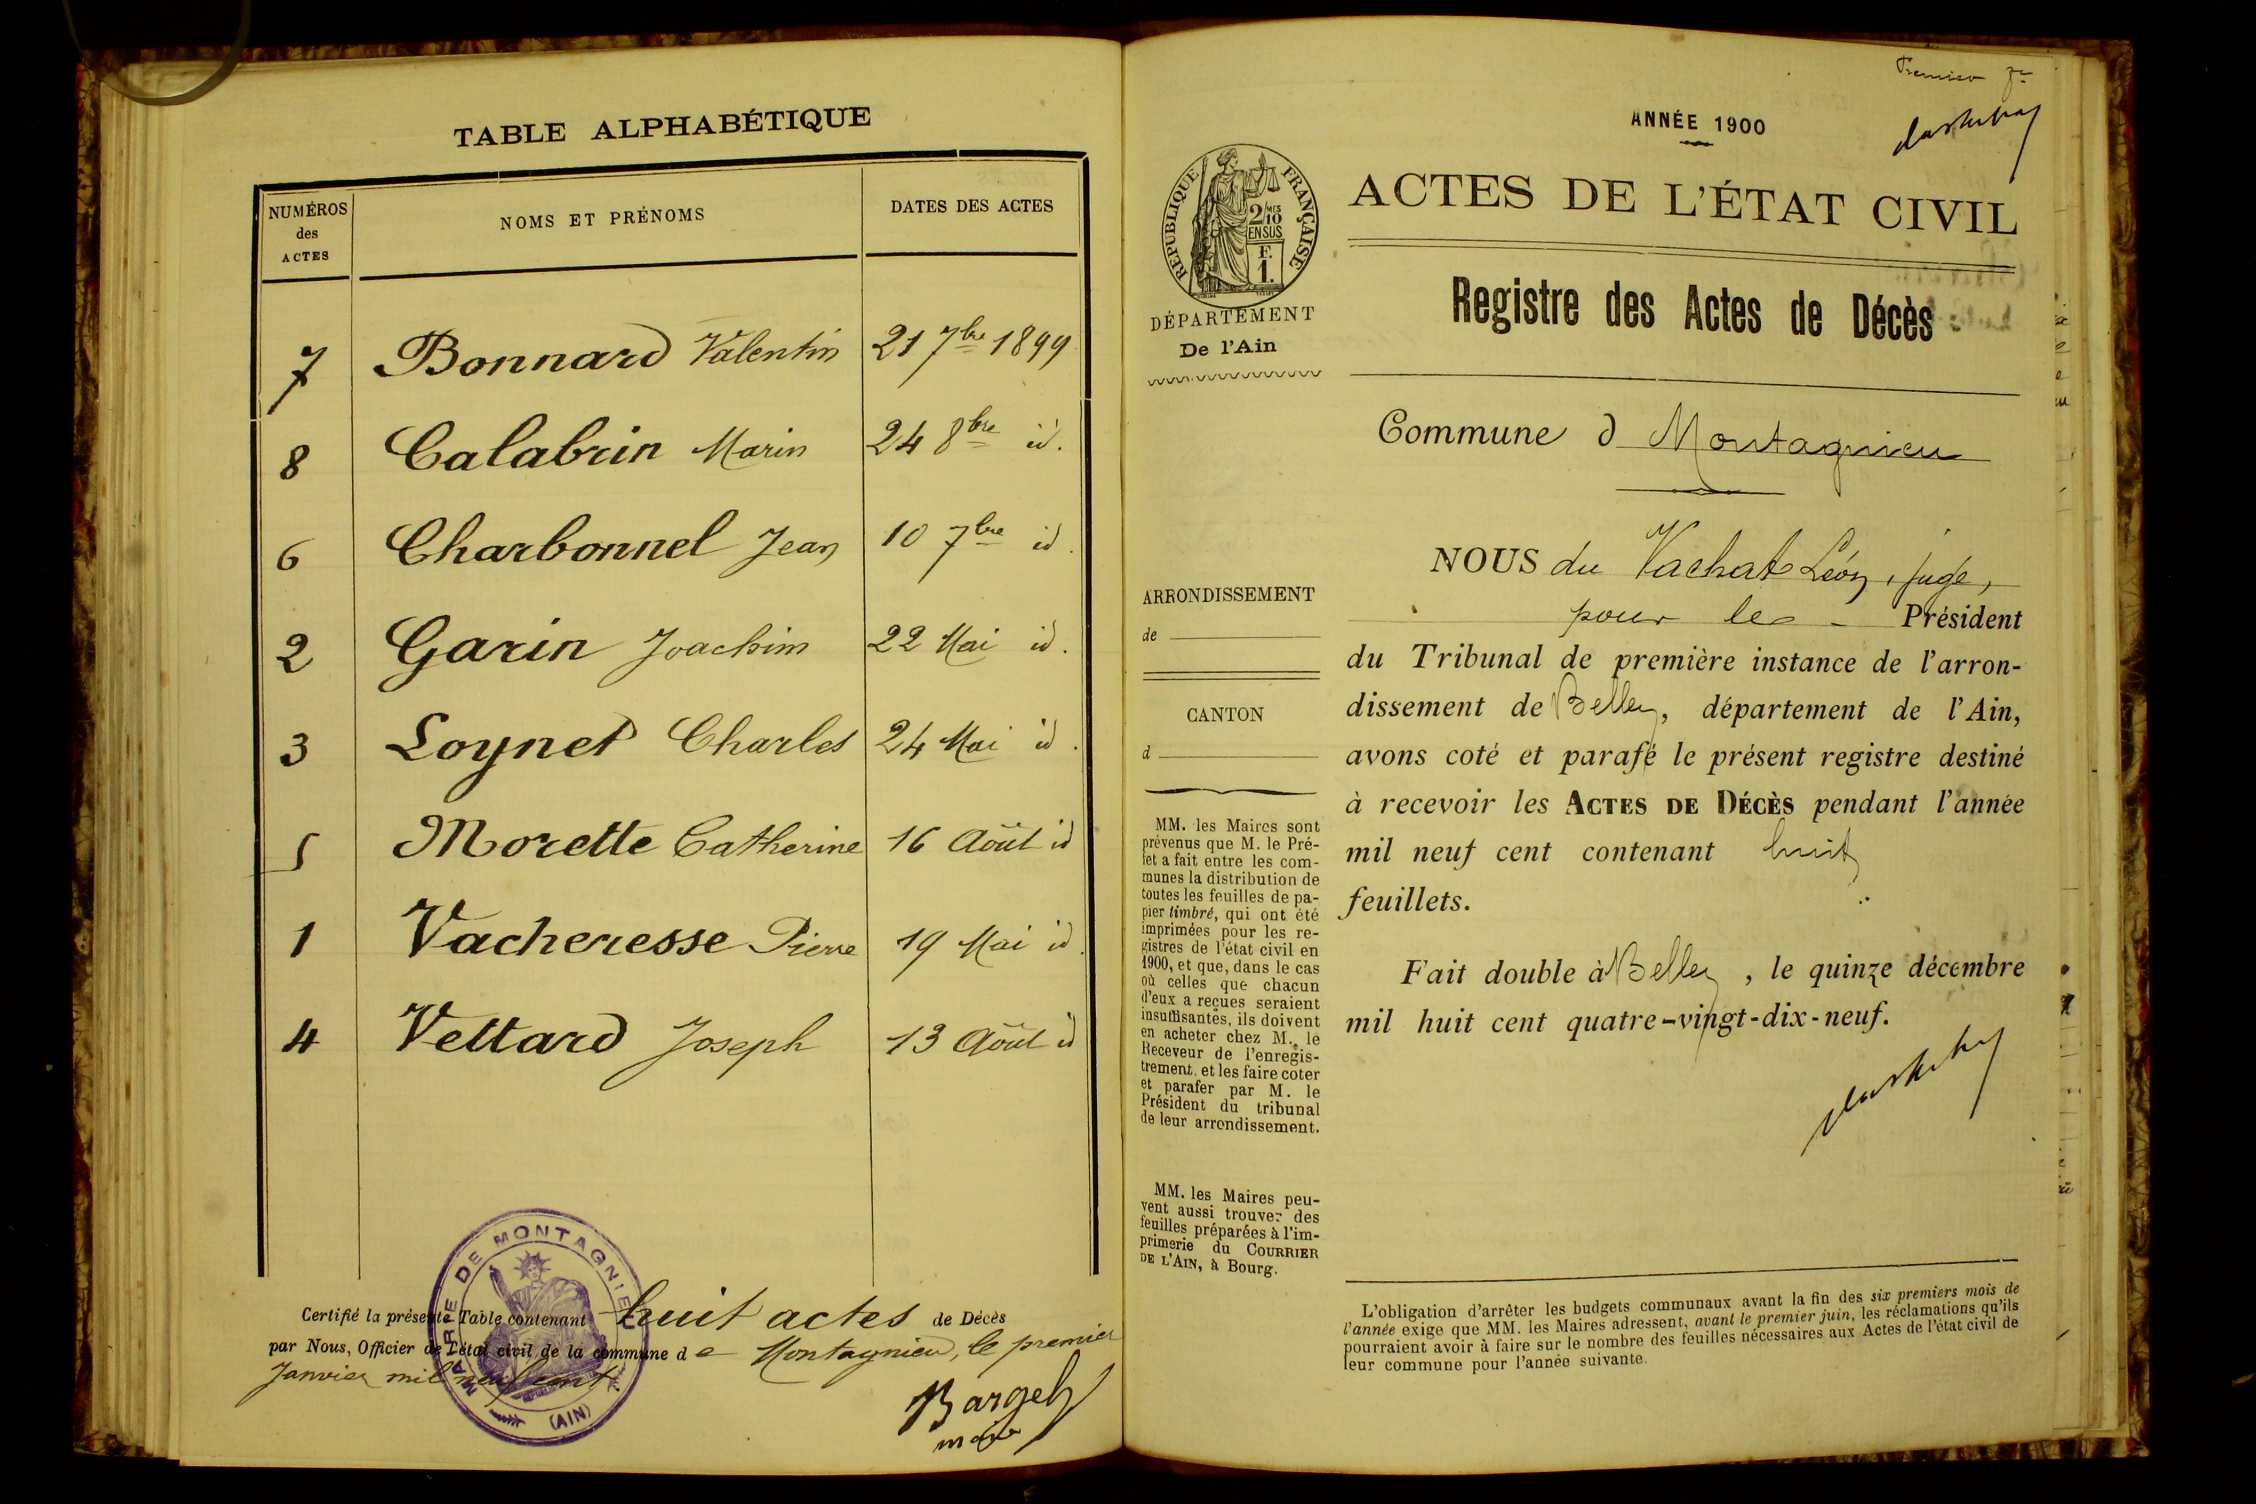 TABLE ALPHABÉTIQUE
NUMÉROS
des
ACTES
NOMS ET PRÉNOMS
DATES DES ACTES
7 Bonnard Valentin 21 7bre 1899
8 Calabrin Marin 24 8bre id.
6 Charbonnel Jean 10 7bre id.
2 Garin Joachim 22 Mai id.
3 Loynet Charles 24 Mai id.
5 Morette Catherine 16 Août id
1 Vacheresse Pierre 19 Mai id.
4 Vettard Joseph 13 Août id
MAIRIE DE MONTAGNIEU
(AIN)
Certifié la présente Table contenant huit actes de Décès
par Nous, Officier de l'état civil de la commune de Montagnieu, le premier
Janvier mil neuf cent
Bargel
maire
Premier
ANNÉE 1900
RÉPUBLIQUE FRANÇAISE
2/10 MES
EN SUS
F.
1.
DÉPARTEMENT
De l'Ain
ACTES DE L'ÉTAT CIVIL
Registre des Actes de Décès
Commune d Montagnieu
ARRONDISSEMENT
de
CANTON
d
MM. les Maires sont
prévenus que M. le Pré-
fet a fait entre les com-
munes la distribution de
toutes les feuilles de pa-
pier timbré, qui ont été
imprimées pour les re-
gistres de l'état civil en
1900, et que, dans le cas
où celles que chacun
d'eux a reçues seraient
insuffisantes, ils doivent
en acheter chez M. le
Receveur de l'enregis-
trement, et les faire coter
et parafer par M. le
Président du tribunal
de leur arrondissement.
MM. les Maires peu-
vent aussi trouver des
feuilles préparées à l'im-
primerie du COURRIER
DE L'AIN, à Bourg.
NOUS du Vachat Léon, juge,
pour le Président
du Tribunal de première instance de l'arron-
dissement de Belley, département de l'Ain,
avons coté et parafé le présent registre destiné
à recevoir les ACTES DE DÉCÈS pendant l'année
mil neuf cent contenant huit
feuillets.
Fait double à Belley, le quinze décembre
mil huit cent quatre-vingt-dix-neuf.
L'obligation d'arrêter les budgets communaux avant la fin des six premiers mois de
l'année exige que MM. les Maires adressent, avant le premier juin, les réclamations qu'ils
pourraient avoir à faire sur le nombre des feuilles nécessaires aux Actes de l'état civil de
leur commune pour l'année suivante.